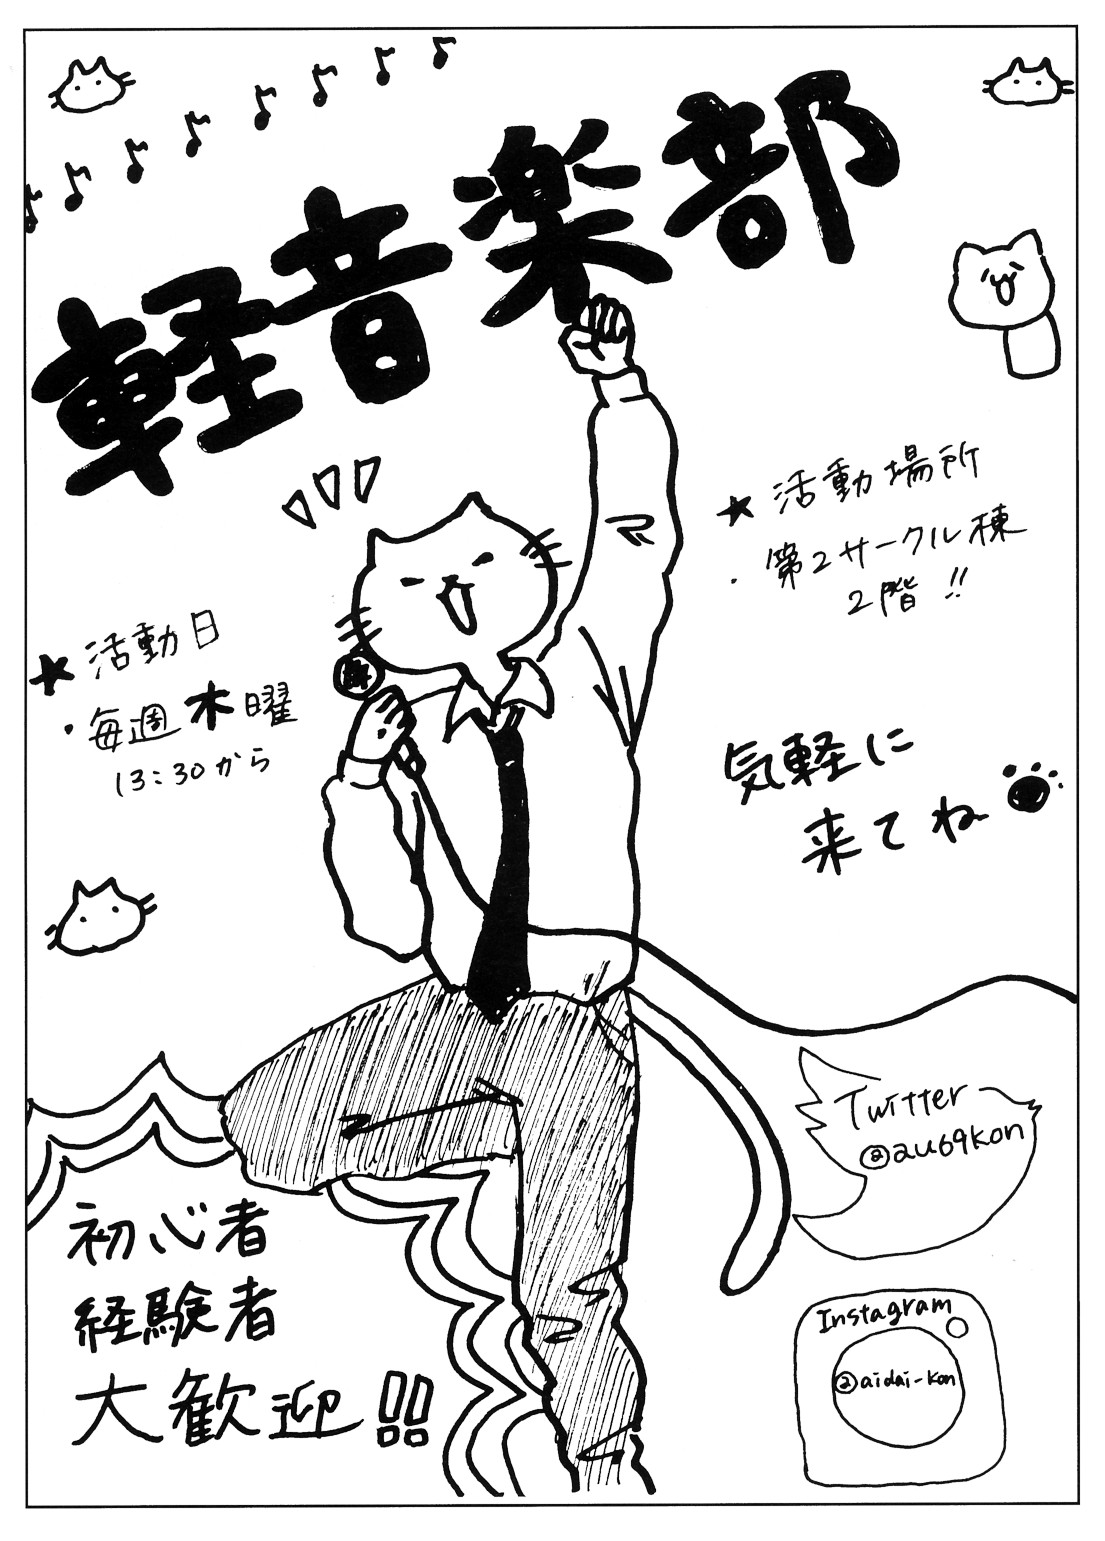 軽音楽部
★活動場所
・第2サークル棟
2階!!
★活動日
・毎週木曜
13:30から
気軽に
来てね
Twitter
@au69kon
初心者
経験者
大歓迎!!
Instagram
@aidai-kon